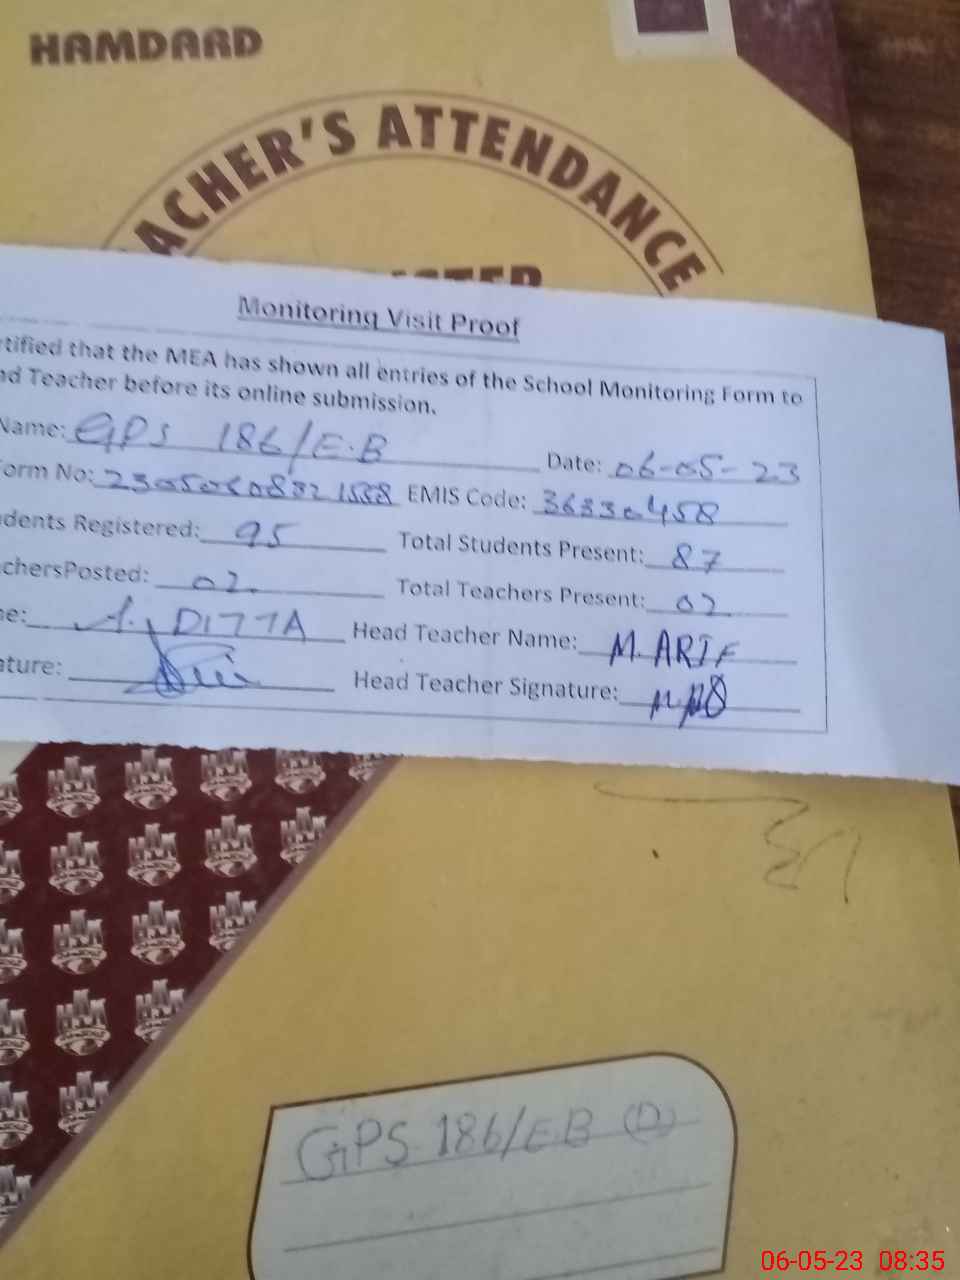 HAMDARD
ACHER'S ATTENDANCE
Monitoring Visit Proof
tified that the MEA has shown all entries of the School Monitoring Form to
d Teacher before its online submission.
Name: GPS 186/E.B Date: 06-05-23
orm No: EMIS Code: 36330458
dents Registered: 95 Total Students Present: 87
chersPosted: 02 Total Teachers Present: 02
e: A. DITTA Head Teacher Name: M. ARIF
ature: Head Teacher Signature:
GPS 186/E.B (D)
06-05-23 08:35